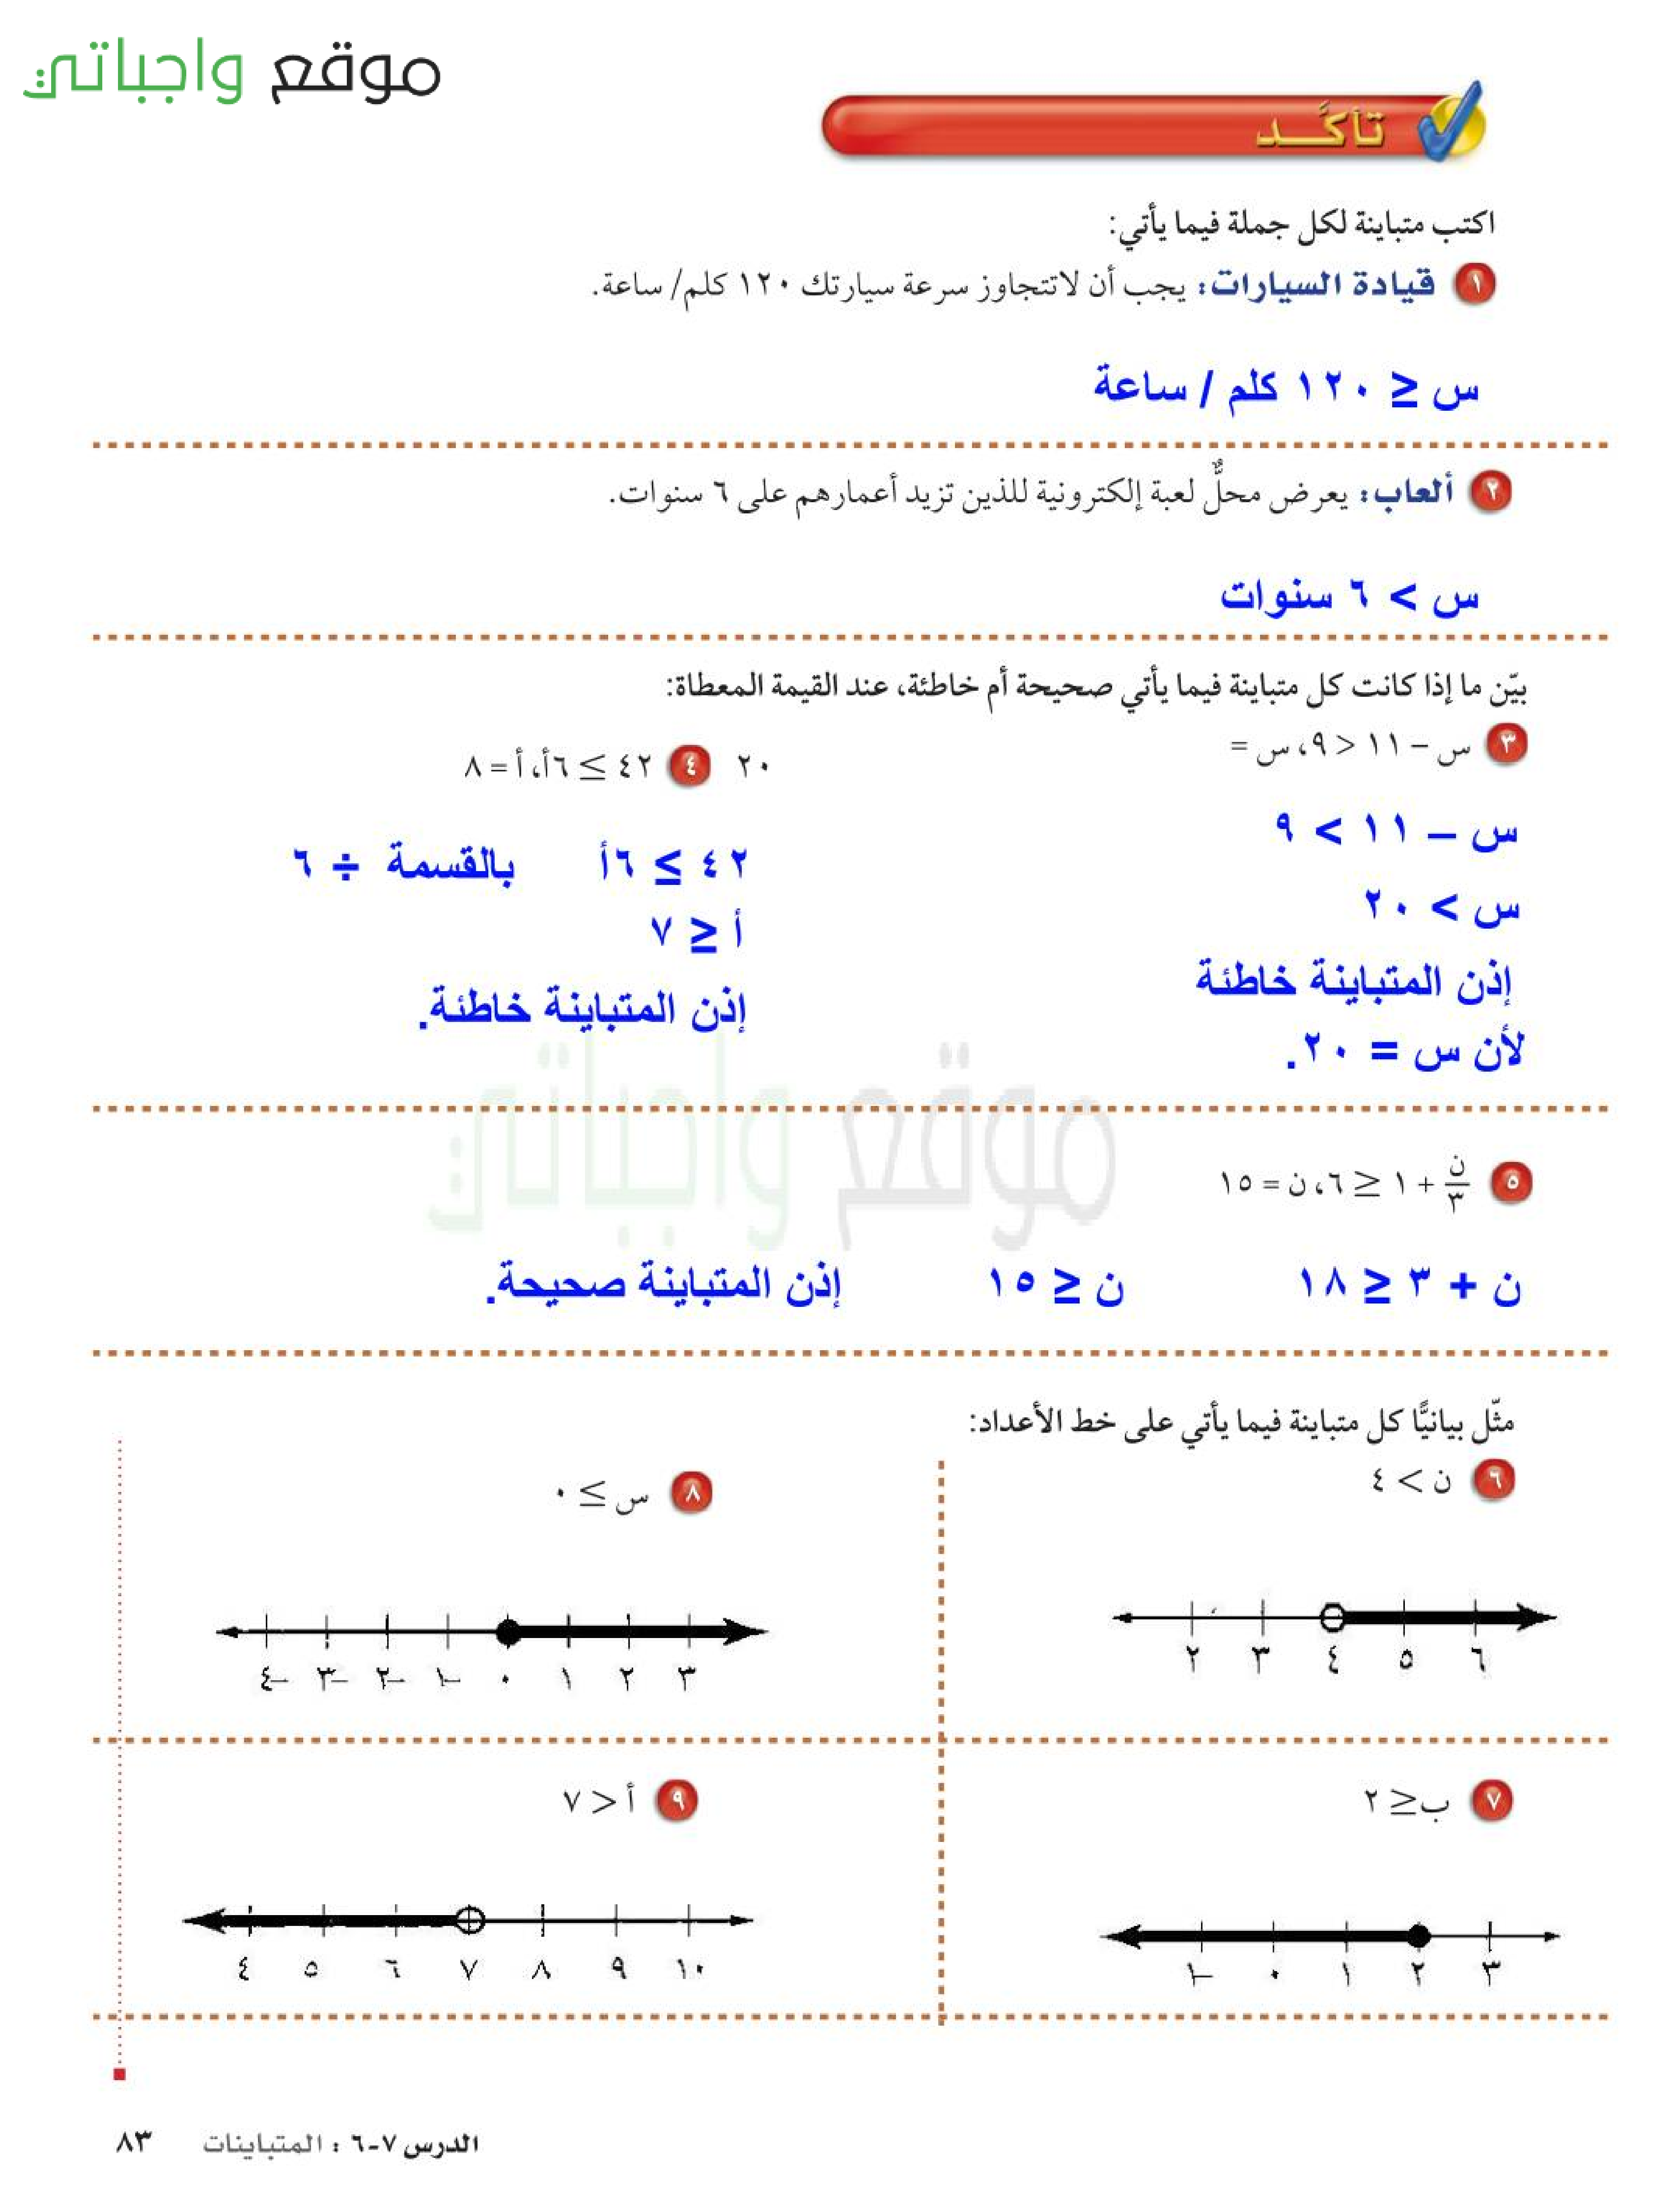 موقع واجباتي
تأكد
اكتب متباينة لكل جملة فيما يأتي:
١ قيادة السيارات: يجب أن لا تتجاوز سرعة سيارتك ١٢٠ كلم/ ساعة.
س ≤ ١٢٠ كلم / ساعة
٢ ألعاب: يعرض محلٌّ لعبة إلكترونية للذين تزيد أعمارهم على ٦ سنوات.
س > ٦ سنوات
بيّن ما إذا كانت كل متباينة فيما يأتي صحيحة أم خاطئة، عند القيمة المعطاة:
٣ س − ١١ < ٩، س =
٢٠
٤ ٤٢ ≥ ٦أ، أ = ٨
س – ١١ > ٩
س > ٢٠
إذن المتباينة خاطئة
لأن س = ٢٠.
٤٢ ≥ ٦أ بالقسمة ÷ ٦
أ ≤ ٧
إذن المتباينة خاطئة.
٥ ن/٣ + ١ ≤ ٦، ن = ١٥
ن + ٣ ≤ ١٨ ن ≤ ١٥ إذن المتباينة صحيحة.
مثّل بيانيًّا كل متباينة فيما يأتي على خط الأعداد:
٦ ن > ٤
٢ ٣ ٤ ٥ ٦
٨ س ≥ ٠
-٤ -٣ -٢ -١ ٠ ١ ٢ ٣
٧ ب ≤ ٢
-١ ٠ ١ ٢ ٣
٩ أ < ٧
٤ ٥ ٦ ٧ ٨ ٩ ١٠
الدرس ٧-٦ : المتباينات ٨٣
موقع واجباتي